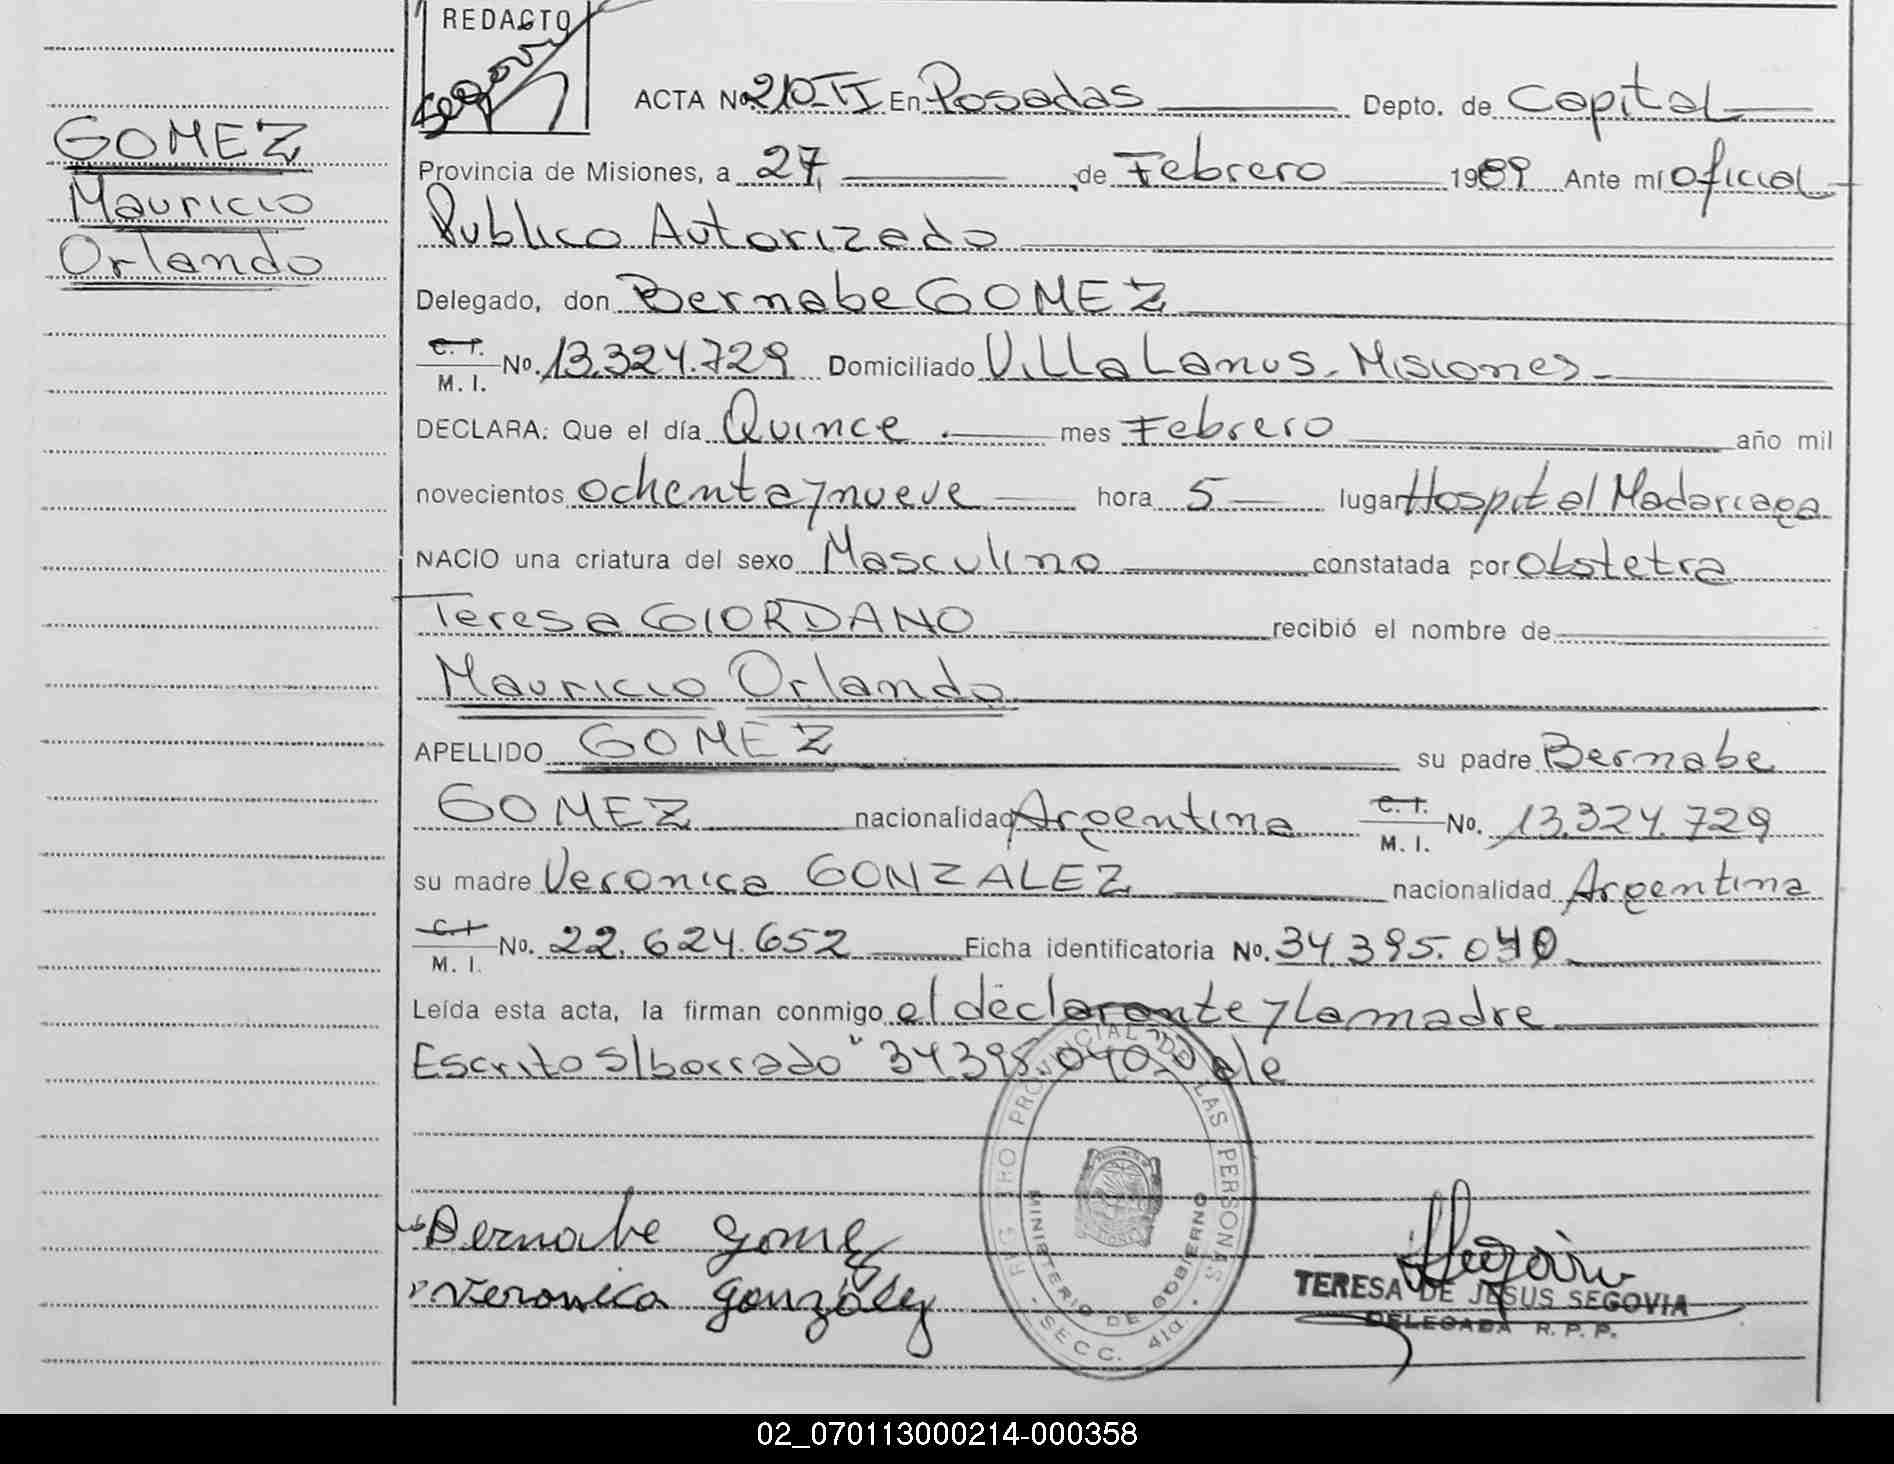 REDACTO
Segovia
GOMEZ
Mauricio
Orlando
ACTA No 210-TI En Posadas Depto. de Capital
Provincia de Misiones, a 27, de Febrero 1989 Ante mí oficial
Publico Autorizado
Delegado, don Bernabe GOMEZ
C. I. M. I. No. 13.324.729 Domiciliado Villa Lanus - Misiones -
DECLARA: Que el día Quince.- mes Febrero año mil
novecientos ochenta y nueve hora 5 lugar Hospital Madariaga
NACIO una criatura del sexo Masculino constatada por Obstetra
Teresa GIORDANO recibió el nombre de
Mauricio Orlando
APELLIDO GOMEZ su padre Bernabe
GOMEZ nacionalidad Argentina C. I. M. I. No. 13.324.729
su madre Veronica GONZALEZ nacionalidad Argentina
C. I. M. I. No. 22.624.652 Ficha identificatoria No. 34.395.040
Leída esta acta, la firman conmigo el declarante y la madre
Escrito s/borrado "34.395.040" Vale
REGISTRO PROVINCIAL DE LAS PERSONAS
MINISTERIO DE GOBIERNO
- SECC. 4ta. -
Bernabe Gomez
Veronica Gonzalez
Segovia
TERESA DE JESUS SEGOVIA
DELEGADA R. P. P.
02_070113000214-000358